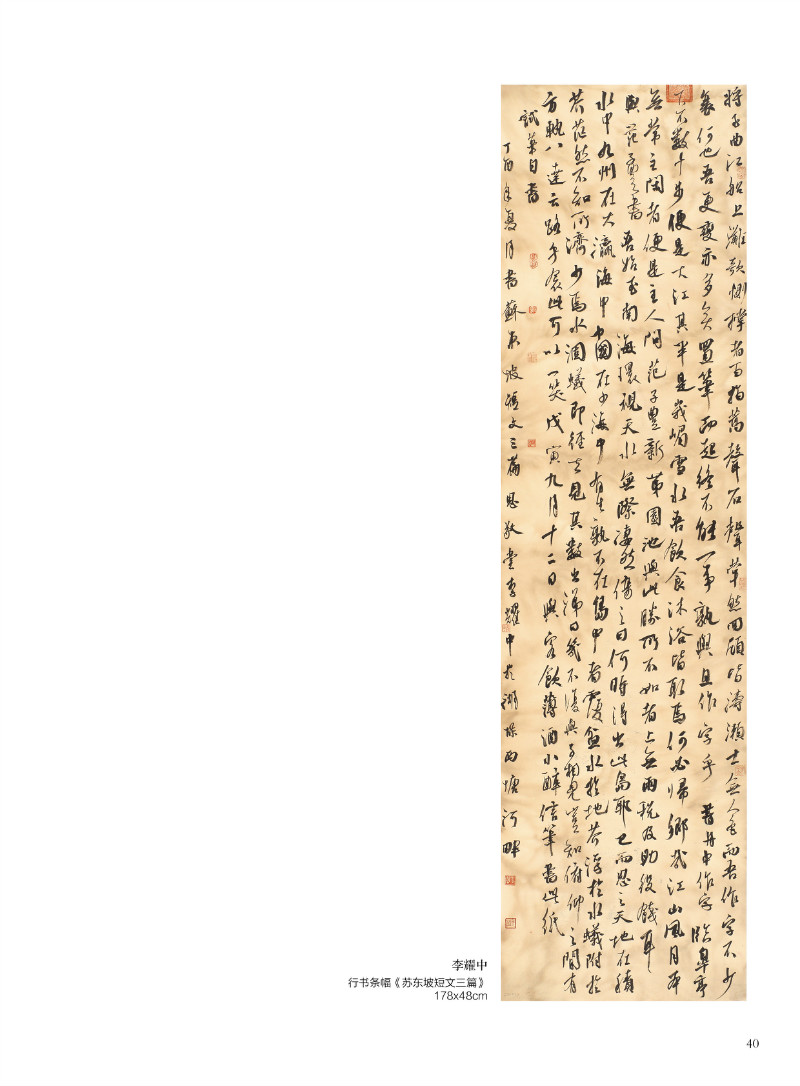 將至曲江船上灘欹側撑者百指篙聲石聲犖然四顧皆濤瀨士無人色而吾作字不少
衰何也吾更變亦多矣置筆而起終不能一事孰與且作字乎 書舟中作字 臨皋亭
下不數十步便是大江其半是峨嵋雪水吾飲食沐浴皆取焉何必歸鄉哉江山風月本
無常主閑者便是主人問范子豐新第園池與此勝所不如者上無兩税及助役錢耳
與范子豐書 吾始至南海環視天水無際凄然傷之曰何時得出此島耶已而思之天地在積
水中九州在大瀛海中中國在少海中有生孰不在島中者覆盆水於地芥浮於水蟻附於
芥茫然不知所濟少焉水涸蟻即徑去見其類出涕曰幾不復與子相見豈知俯仰之間有
方軌八達之路乎念此可以一笑戊寅九月十二日與客飲薄酒小醉信筆書此紙
試筆自書
丁酉年夏月書蘇東坡短文三篇 思敬堂李耀中於湖墅西塘河畔
李耀中
行书条幅《苏东坡短文三篇》
178x48cm
40